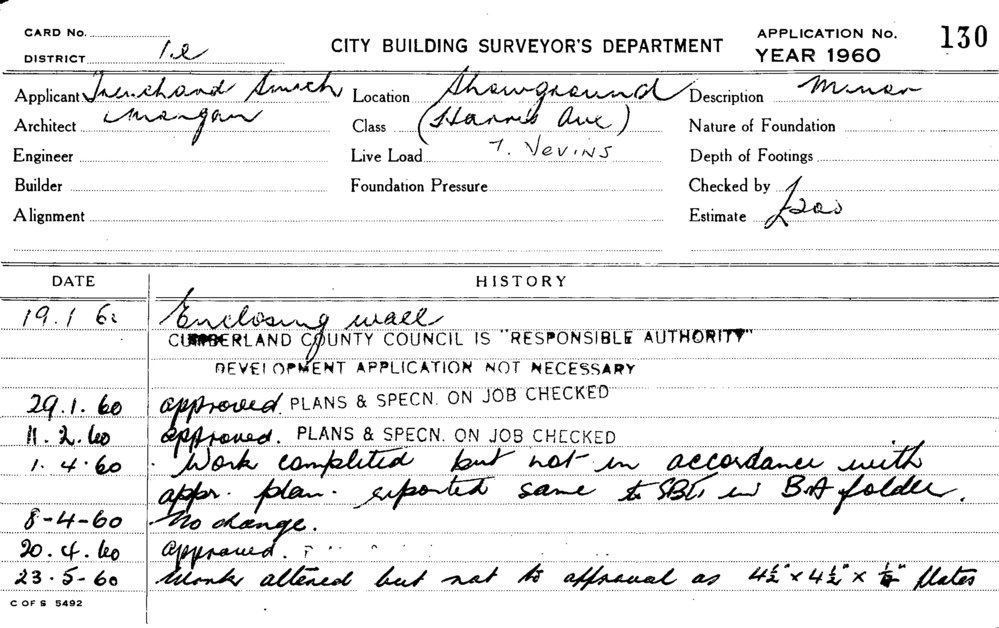 CARD No.
DISTRICT 1.e
CITY BUILDING SURVEYOR'S DEPARTMENT
APPLICATION No. 130
YEAR 1960
Applicant Trenchard Smith
Location Showground
Description Minor
Architect Morgan
Class (Harris Ave)
Nature of Foundation
Engineer
Live Load T. Nevins
Depth of Footings
Builder
Foundation Pressure
Checked by
Alignment
Estimate £200
DATE HISTORY
19.1 Enclosing wall
CUMBERLAND COUNTY COUNCIL IS "RESPONSIBLE AUTHORITY"
DEVELOPMENT APPLICATION NOT NECESSARY
29.1.60 approved. PLANS & SPECN. ON JOB CHECKED
11.2.60 approved. PLANS & SPECN. ON JOB CHECKED
1.4.60 Work completed but not in accordance with
appr. plan. reported same to in B.A folder.
8-4-60 No change.
20.4.60 Approved.
23.5-60 Work altered but not to approval as 4½" x 4½" x plates
C OF S 5492